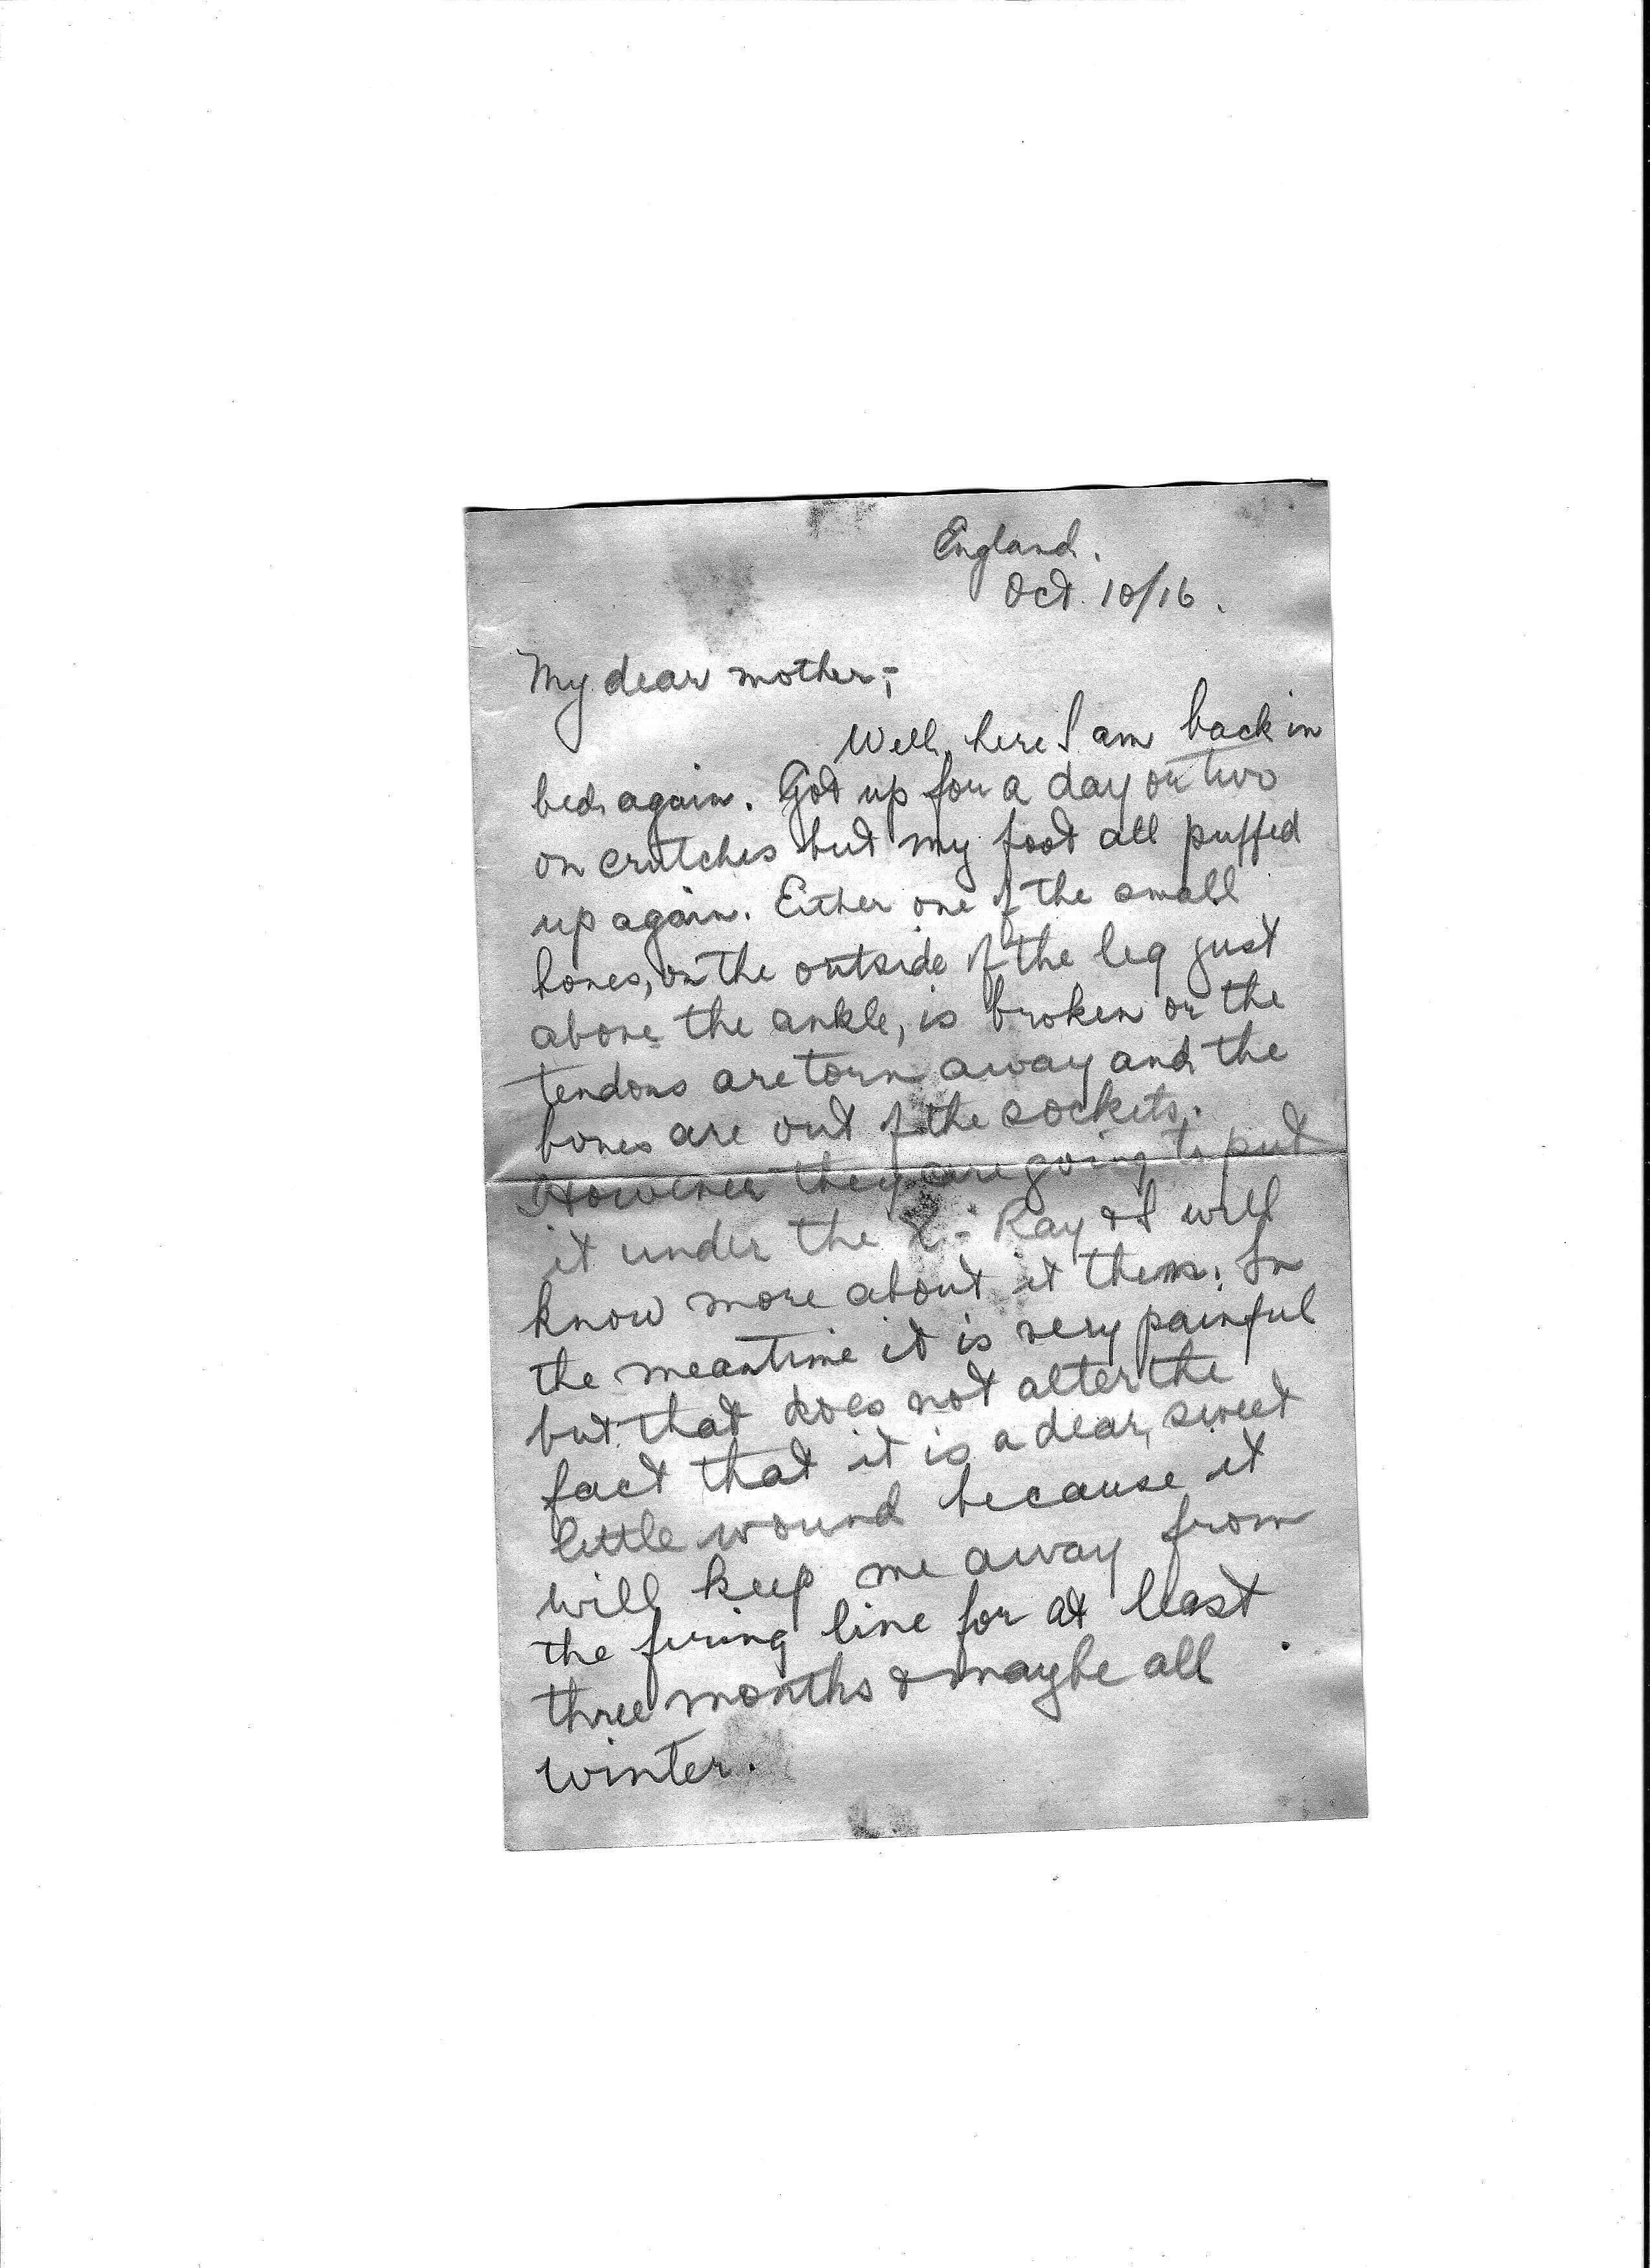 England.
Oct. 10/16.
My dear mother;-
Well, here I am back in
bed again. Got up for a day or two
on crutches but my foot all puffed
up again. Either one of the small
bones, on the outside of the leg just
above the ankle, is broken or the
tendons are torn away and the
bones are out of the sockets.
However they are going to put
it under the X-Ray & I will
know more about it then. In
the meantime it is very painful
but that does not alter the
fact that it is a dear, sweet
little wound because it
will keep me away from
the firing line for at least
three months & maybe all
winter.